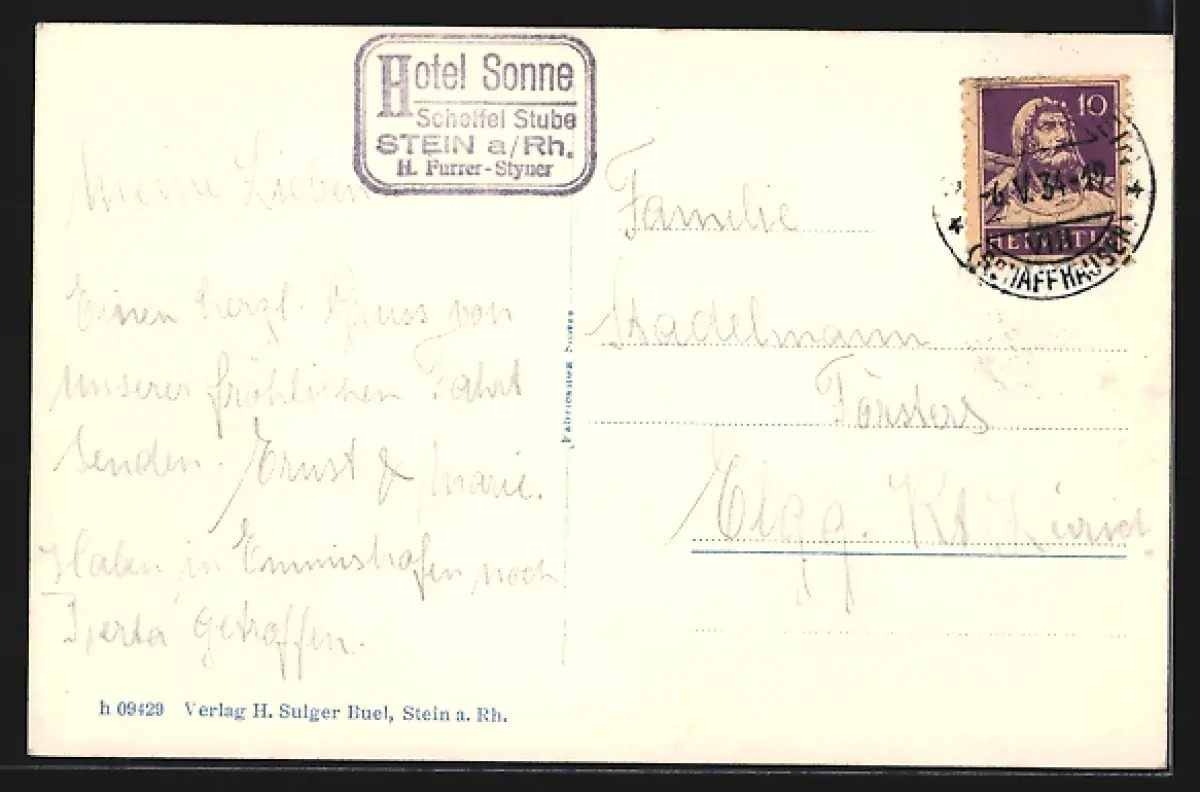 Hotel Sonne
Scheffel Stube
STEIN a/Rh.
H. Furrer-Styner
Meine Lieben
Einen herzl. Gruss von
unserer fröhlichen Fahrt
senden. Ernst & Marie.
Haben in Emmishofen noch
Berta getroffen.
h 09429 Verlag H. Sulger Buel, Stein a. Rh.
10
6.V.34-19
VIII
HELVETIA
(SCHAFFHAUSEN)
Familie
Stadelmann
Försters
Elgg. Kt. Zürich